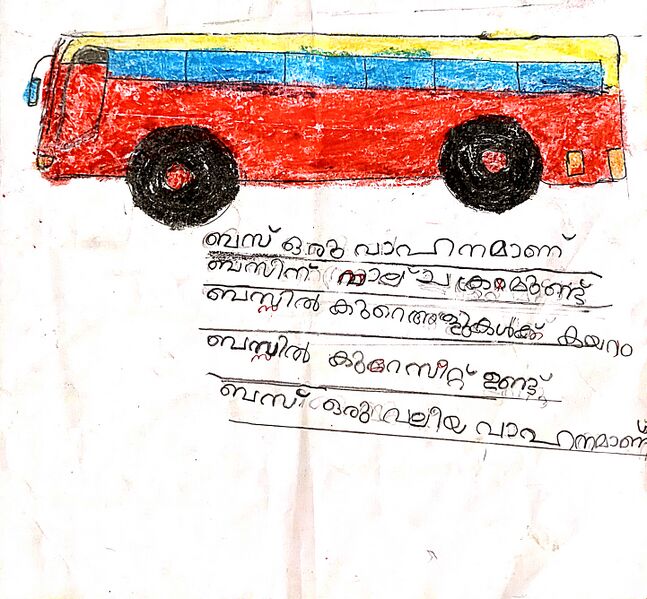 ബസ് ഒരു വാഹനമാണ്
ബസിന് നാല് ചക്രമുണ്ട്
ബസ്സിൽ കുറെ ആളുകൾക്ക് കയറാം
ബസ്സിൽ കുറേ സീറ്റ് ഉണ്ട്
ബസ് ഒരു വലിയ വാഹനമാണ്